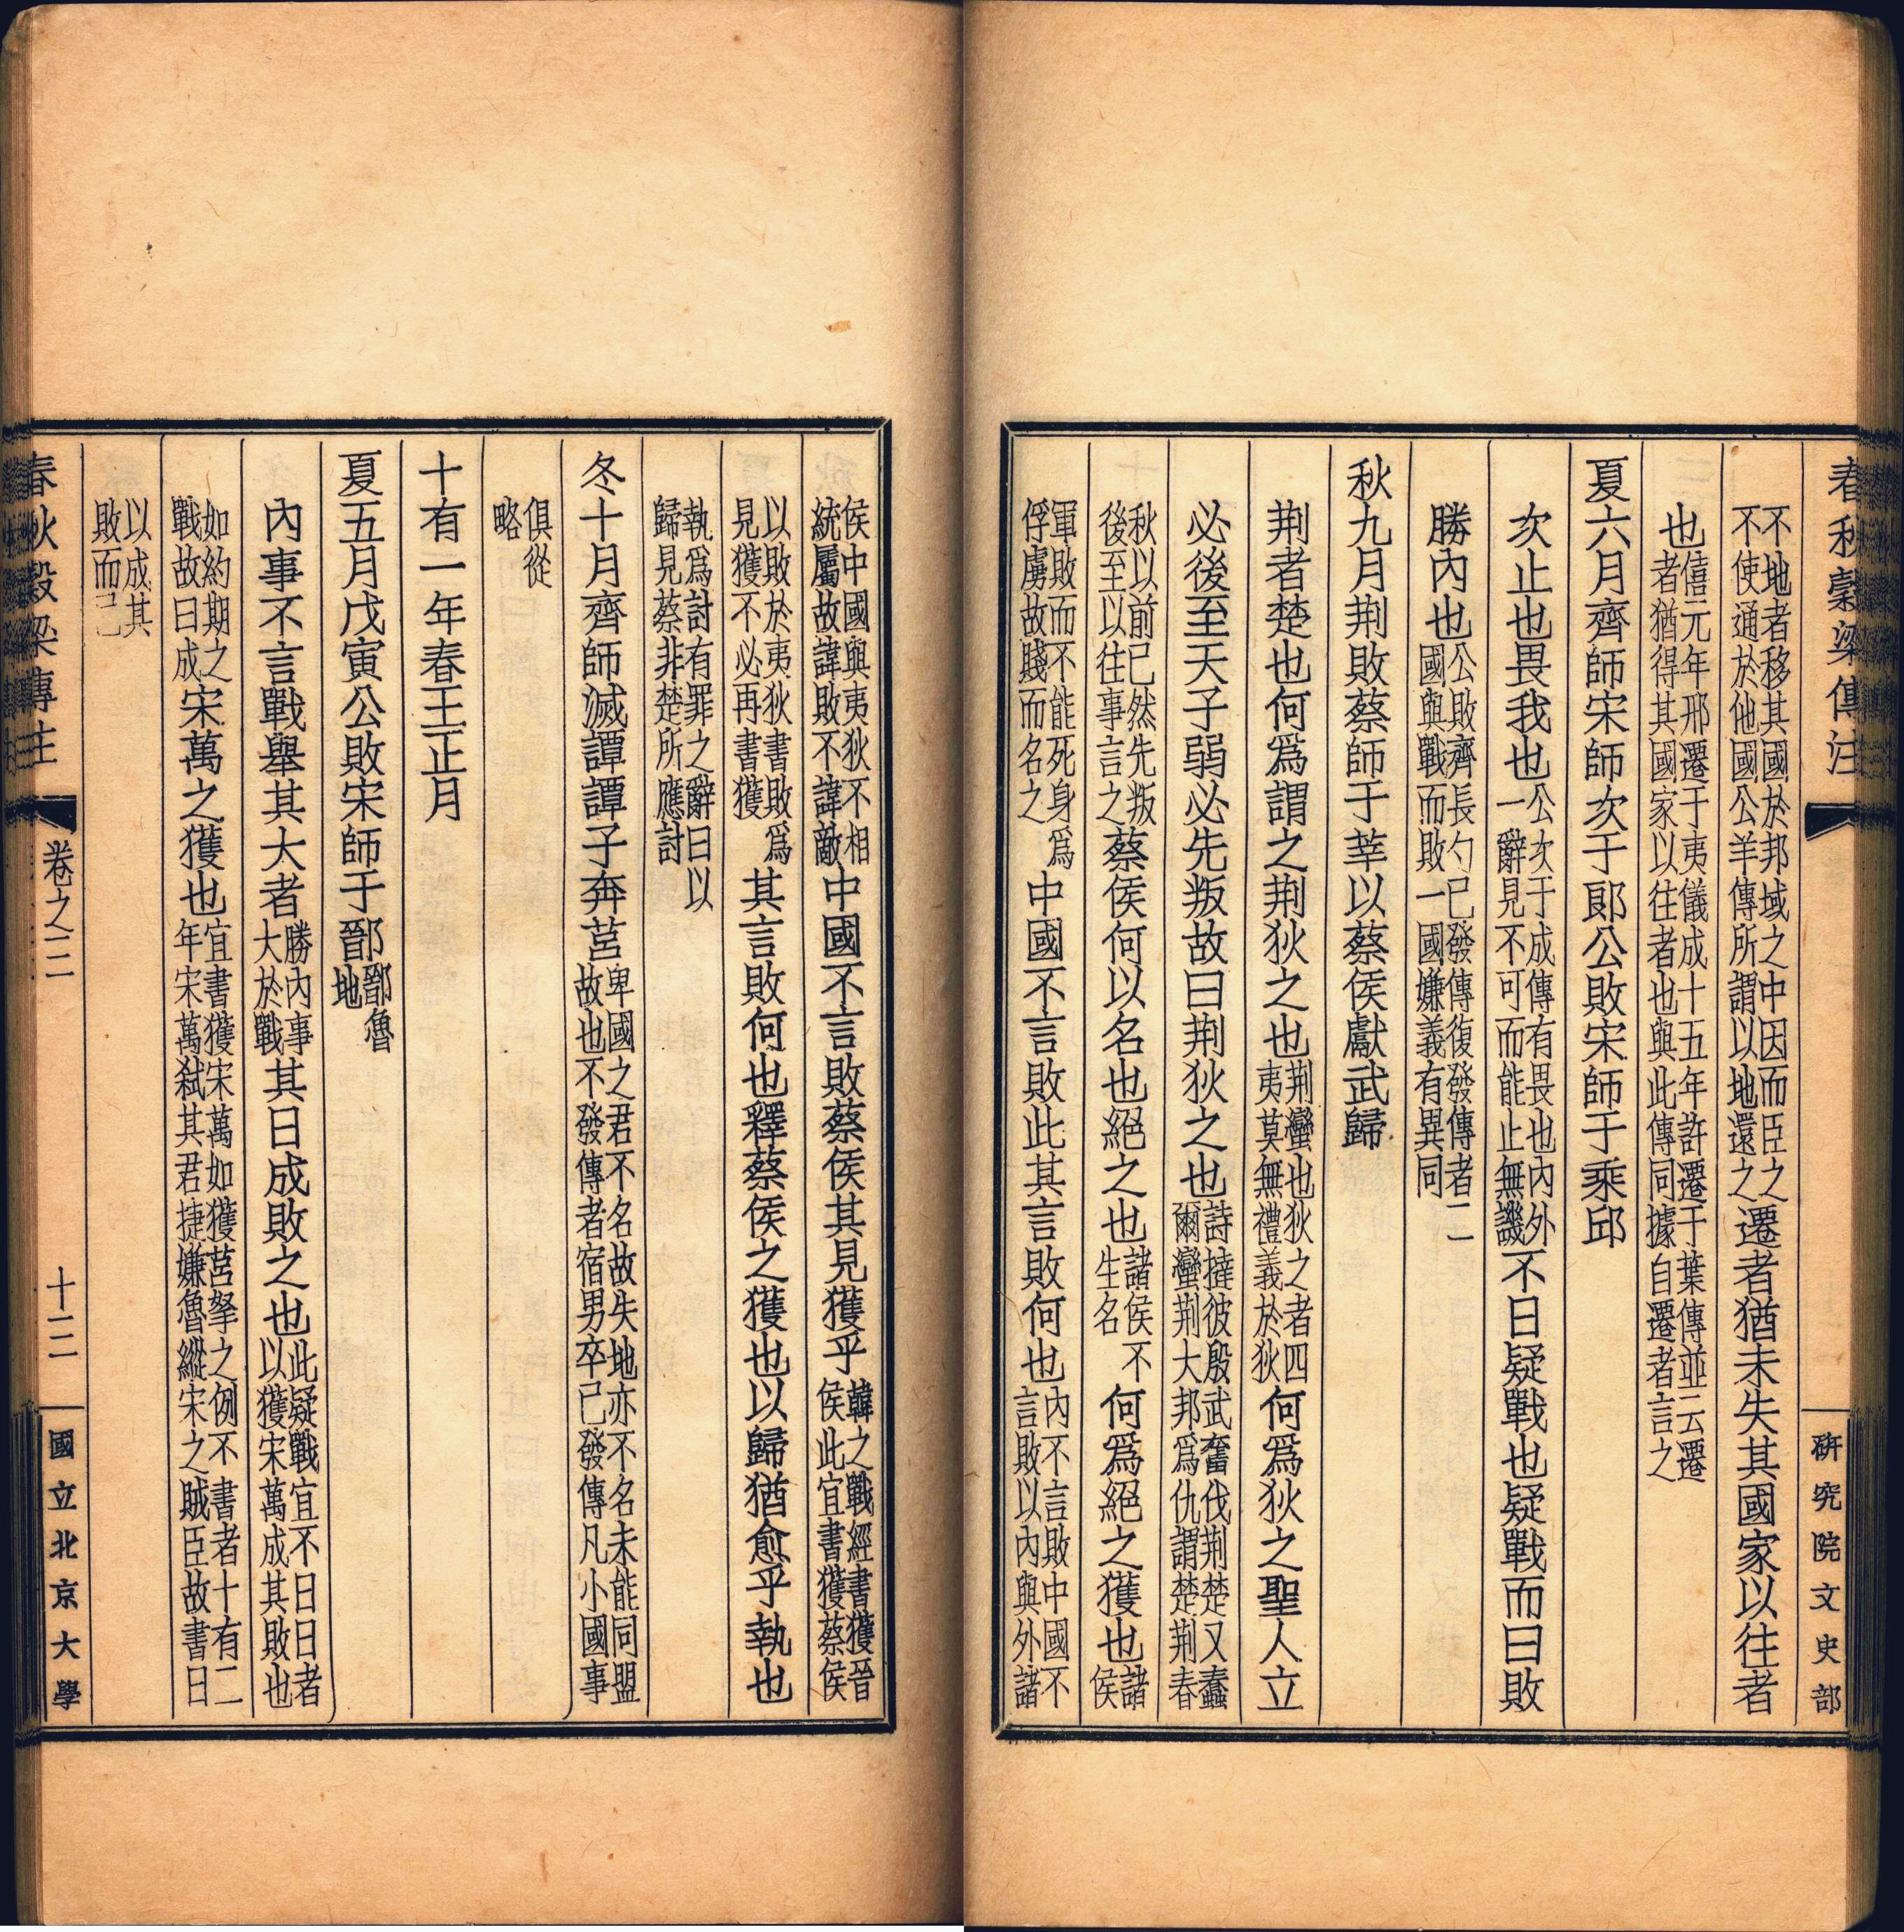 春秋穀梁傳注 研究院文史部
不地者移其國於邦域之中因而臣之不使通於他國公羊傳所謂以地還之遷者猶未失其國家以往者
也僖元年邢遷于夷儀成十五年許遷于葉傳並云遷者猶得其國家以往者也與此傳同據自遷者言之
夏六月齊師宋師次于郎公敗宋師于乘邱
次止也畏我也公次于成傳有畏也內外一辭見不可而能止無譏不日疑戰也疑戰而曰敗
勝內也公敗齊長勺已發傳復發傳者二國與戰而敗一國嫌義有異同
秋九月荆敗蔡師于莘以蔡侯獻武歸
荆者楚也何爲謂之荆狄之也荆蠻也狄之者四夷莫無禮義於狄何爲狄之聖人立
必後至天子弱必先叛故曰荆狄之也詩撻彼殷武奮伐荆楚又蠢爾蠻荆大邦爲仇謂楚荆春
秋以前已然先叛後至以往事言之蔡侯何以名也絕之也諸侯不生名何爲絕之獲也諸侯
軍敗而不能死身爲俘虜故賤而名之中國不言敗此其言敗何也內不言敗中國不言敗以內與外諸
侯中國與夷狄不相統屬故諱敗不諱敵中國不言敗蔡侯其見獲乎韓之戰經書獲晉侯此宜書獲蔡侯
以敗於夷狄書敗爲見獲不必再書獲其言敗何也釋蔡侯之獲也以歸猶愈乎執也
執爲討有罪之辭曰以歸見蔡非楚所應討
冬十月齊師滅譚譚子奔莒卑國之君不名故失地亦不名未能同盟故也不發傳者宿男卒已發傳凡小國事
俱從略
十有一年春王正月
夏五月戊寅公敗宋師于鄑鄑魯地
內事不言戰舉其大者勝內事大於戰其日成敗之也此疑戰宜不日日者以獲宋萬成其敗也
如約期之戰故曰成宋萬之獲也宜書獲宋萬如獲莒挐之例不書者十有二年宋萬弒其君捷嫌魯縱宋之賊臣故書日
以成其敗而已
春秋穀梁傳注 卷之二 十二 國立北京大學